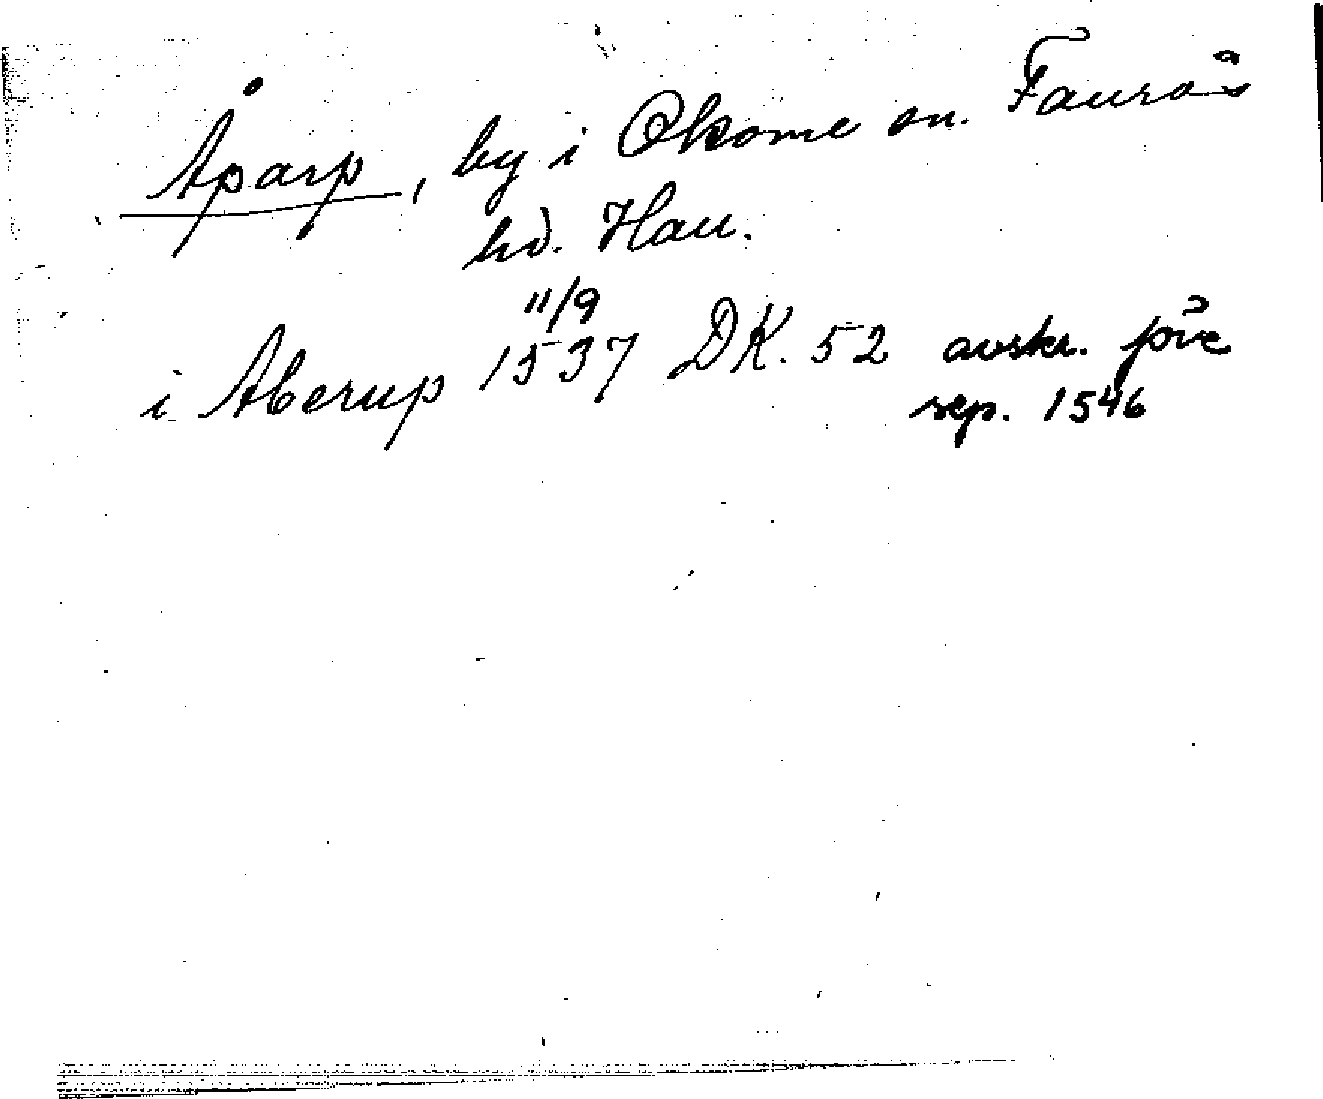 Åparp, by i Okome sn. Faurås
hd. Hall.
11/9
i Aberup 1537 DK. 52 avskr. före
sep. 1546